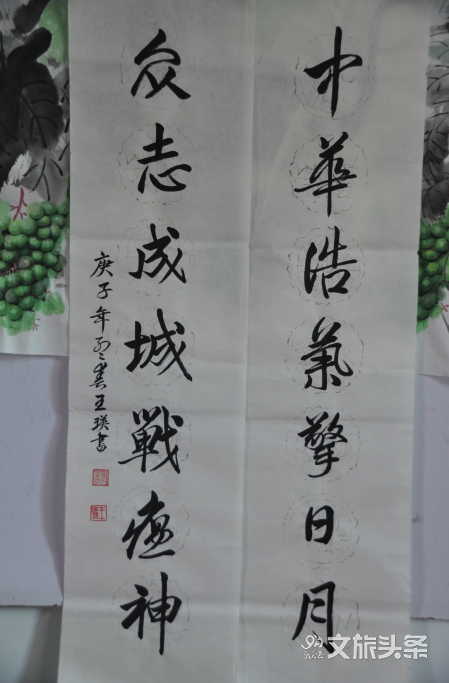 中華浩氣擎日月
众志成城戰瘟神
庚子年孟春王瑛書
文旅头条